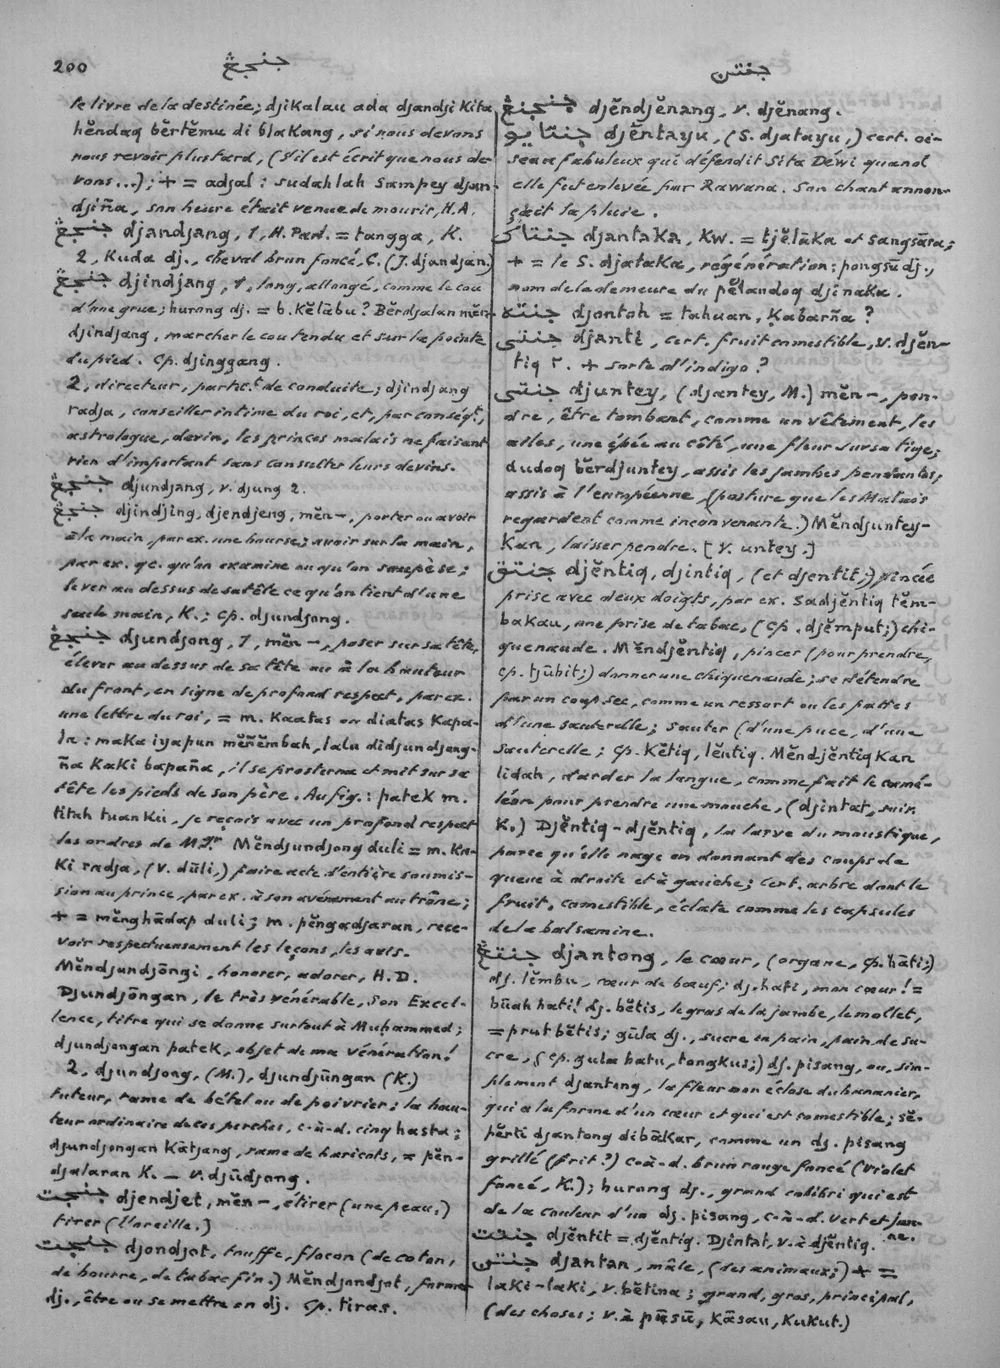 200
جنجڠ
جنتن
le livre de la destinée; djikalau ada djandji kita
hĕndaq bĕrtĕmu di blakang, si nous devons
nous revoir plus tard, (s'il est écrit que nous de-
vons...); + = adjal: sudahlah sampey djan-
djiña, son heure était venue de mourir, H.A.
جنجڠ djandjang, 1, H. Part. = tangga, K.
2, Kuda dj., cheval brun foncé, C. (J. djandjan.)
جنجڠ djindjang, 1, long, allongé, comme le cou
d'une grue; burong dj. = b. kĕlābu? Bĕrdjalan mĕn-
djindjang, marcher le cou tendu et sur la pointe
du pied. Cp. djinggang.
2, directeur, partic.t de conduite; djindjang
radja, conseiller intime du roi, et, par conséqt,
astrologue, devin, les princes malais ne faisant
rien d'important sans consulter leurs devins.
جنجڠ djundjang, v. djung 2.
جنجڠ djindjing, djendjeng, mĕn-, porter ou avoir
à la main, par ex. une bourse; avoir sur la main,
par ex. qc. qu'on examine ou qu'on soupèse;
lever au dessus de sa tête ce qu'on tient d'une
seule main, K.; cp. djundjong.
جنجڠ djundjong, 1, mĕn-, poser sur sa tête,
élever au dessus de sa tête ou à la hauteur
du front, en signe de profond respect, par ex.
une lettre du roi, = m. kaatas ou diatas kapa-
la: maka iyapun mĕñĕmbah, lalu didjundjong-
ña kaki bapaña, il se prosterna et mit sur sa
tête les pieds de son père. Au fig.: patek m.
titah tuanku, je reçois avec un profond respect
les ordres de V.M. Mĕndjundjong duli = m. ka-
ki radja, (v. dūli,) faire acte d'entière soumis-
sion au prince, par ex. à son avénement au trône;
+ = mĕnghādap duli; m. pĕngadjaran, rece-
voir respectueusement les leçons, les avis.
Mĕndjundjōngi, honorer, adorer, H.D.
Djundjōngan, le très vénérable, Son Excel-
lence, titre qui se donne surtout à Muḥammed;
djundjongan patek, objet de ma vénération!
2, djundjong, (M.), djundjūngan (K.)
tuteur, rame de bétel ou de poivrier; la hau-
teur ordinaire de ces perches, c-à-d. cinq hasta;
djundjongan kātjang, rame de haricots, = pĕn-
djalaran K. – v. djūdjong.
جنجت djendjet, mĕn-, étirer (une peau,)
tirer (l'oreille.)
جنجت djondjot, touffe, flocon (de coton,
de bourre, de tabac fin.) Mĕndjondjot, former
dj., être ou se mettre en dj. Cp. tiras.
جنجنڠ djĕndjĕnang, v. djĕnang.
جنتايو djĕntayu, (S. djatayu,) cert. oi-
seau fabuleux qui défendit Sita Déwi quand
elle fut enlevée par Rawana. Son chant annon-
çait la pluie.
جنتاک djantaka, Kw. = tjĕlāka et sangsāra;
+ = le S. djataka, régénération: pongsū dj.,
nom de la demeure du pĕlandoq djinaka.
جنته djontoh = tahuan, kabarña?
جنتي djanti, cert. fruit comestible, v. djĕn-
tiq ٢. + sorte d'indigo?
جنتي djuntey, (djantey, M.) mĕn-, pen-
dre, être tombant, comme un vêtement, les
ailes, une épée au côté, une fleur sur sa tige;
dudoq bĕrdjuntey, assis les jambes pendantes,
assis à l'européenne, (posture que les Malais
regardent comme inconvenante.) Mĕndjuntey-
kan, laisser pendre. [v. untey.]
جنتق djĕntiq, djintiq, (et djentit;) pincée
prise avec deux doigts, par ex. sadjĕntiq tĕm-
bakau, une prise de tabac, (cp. djĕmput;) chi-
quenaude. Mĕndjĕntiq, pincer (pour prendre,
cp. tjūbit;) donner une chiquenaude; se détendre
par un coup sec, comme un ressort ou les pattes
d'une sauterelle; sauter (d'une puce, d'une
sauterelle; cp. kĕtiq, lĕntiq. Mĕndjĕntiq kan
lidah, darder la langue, comme fait le camé-
léon pour prendre une mouche, (djintat, suiv.
K.) Djĕntiq-djĕntiq, la larve du moustique,
parce qu'elle nage en donnant des coups de
queue à droite et à gauche; cert. arbre dont le
fruit, comestible, éclate comme les capsules
de la balsamine.
جنتڠ djantong, le cœur, (organe, cp. hāti;)
dj. lĕmbu, cœur de bœuf; dj. hati, mon cœur! =
būah hati! dj. bĕtis, le gras de la jambe, le mollet,
= prut bĕtis; gūla dj., sucre en pain, pain de su-
cre, (cp. gula batu, tongkus;) dj. pisang, ou, sim-
plement djantong, la fleur non éclose du bananier,
qui a la forme d'un cœur et qui est comestible; sĕ-
pĕrti djantong dibākar, comme un dj. pisang
grillé (frit?) c-à-d. brun rouge foncé (violet
foncé, K.); burong dj., grand colibri qui est
de la couleur d'un dj. pisang, c-à-d. vert et jau-
ne.
جنتت djĕntit = djĕntiq. Djintat, v. à djĕntiq.
جنتن djantan, mâle, (des animaux;) + =
laki-laki, v. bĕtina; grand, gros, principal,
(des choses; v. à pūsū, kāsau, kukut.)